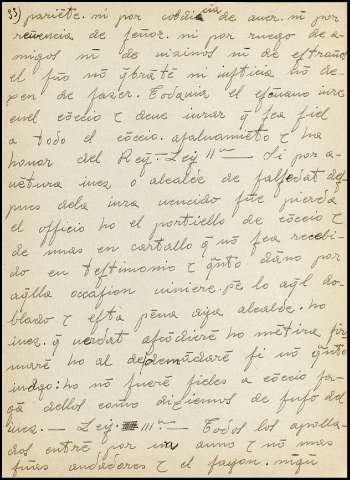 33) pariẽte. ni por cobdiçia de aver. ni por
reũencia de señor. ni por ruego de a-
migos nĩ de vizinos nĩ de estraños
el fũo nõ q̃brãte ni iusticia nõ de-
xen de fazer. Todavia el escriuano iure
enel cõceio τ deve iurar q̃ sea fiel
a todo el cõceio. asaluamiẽto τ ha
honor del Rey. Ley IIᵃ — Si por a-
uẽtura iuez o alcalde de falsedat des
pues dela iura vencido fũe pierda
el officio ho el portiello de cõceio τ
de mas en cartallo q̃ nõ sea recebi-
do en testimonio τ q̃nto dãno por
aq̃lla occasion viniere. pe lo aq̃l do-
blado τ esta pẽna aya alcalde. ho
iuez. q̃ verdat ascõdierẽ ho mẽtira fir
marẽ ho al demãdarẽ si nõ q̃nto
iudgo: ho nõ fuerẽ fieles a cõceio fa-
gã dellos como diziemos de suso del
iuez. — Ley. IIIᵃ — Todos los apella-
dos entrẽ por un anno τ nõ mas
sinas andadores τ el sayon. nĩgũ